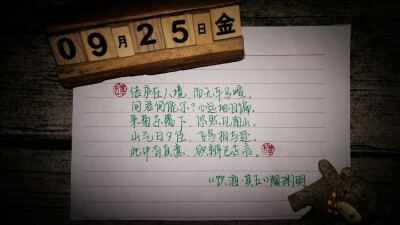 09月25日金
结庐在人境，而无车马喧。
问君何能尔？心远地自偏。
采菊东篱下，悠然见南山。
山气日夕佳，飞鸟相与还。
此中有真意，欲辨已忘言。
《饮酒·其五》陶渊明